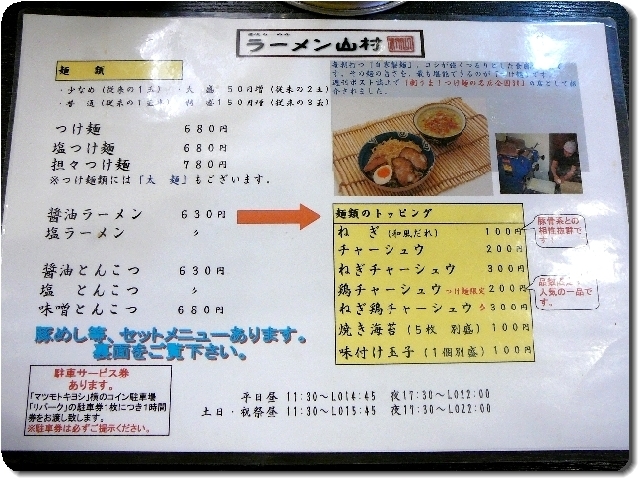 ラーメン山村
麺 類
・少なめ(従来の1玉) ・大 盛 50円増(従来の2玉)
・普 通(従来の1.5玉) 特 盛 150円増(従来の3玉)
つけ麺 680円
塩つけ麺 680円
担々つけ麺 780円
※つけ麺類には「太 麺」もございます。
醤油ラーメン 630円
塩ラーメン 〃
醤油とんこつ 630円
塩 とんこつ 〃
味噌とんこつ 680円
豚めし等、セットメニューあります。
裏面をご覧下さい。
駐車サービス券
あります。
「マツモトキヨシ」横のコイン駐車場
「リパーク」の駐車券1枚につき1時間
券をお渡し致します。
※駐車券は必ずご提示ください。
麺類のトッピング
ねぎ (和風だれ) 100円
チャーシュウ 200円
ねぎチャーシュウ 300円
鶏チャーシュウ つけ麺限定 200円
ねぎ鶏チャーシュウ 〃 300円
焼き海苔 (5枚 別盛) 100円
味付け玉子 (1個別盛) 100円
豚骨系との
相性抜群で
す!
人気の一品で
す。
平日昼 11:30~LO14:45 夜17:30~LO22:00
土日・祝祭日 11:30~LO15:45 夜17:30~LO22:00